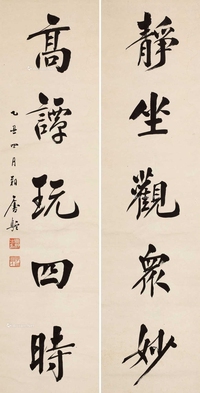 靜坐觀衆妙
高譚玩四時
乙丑四月朔